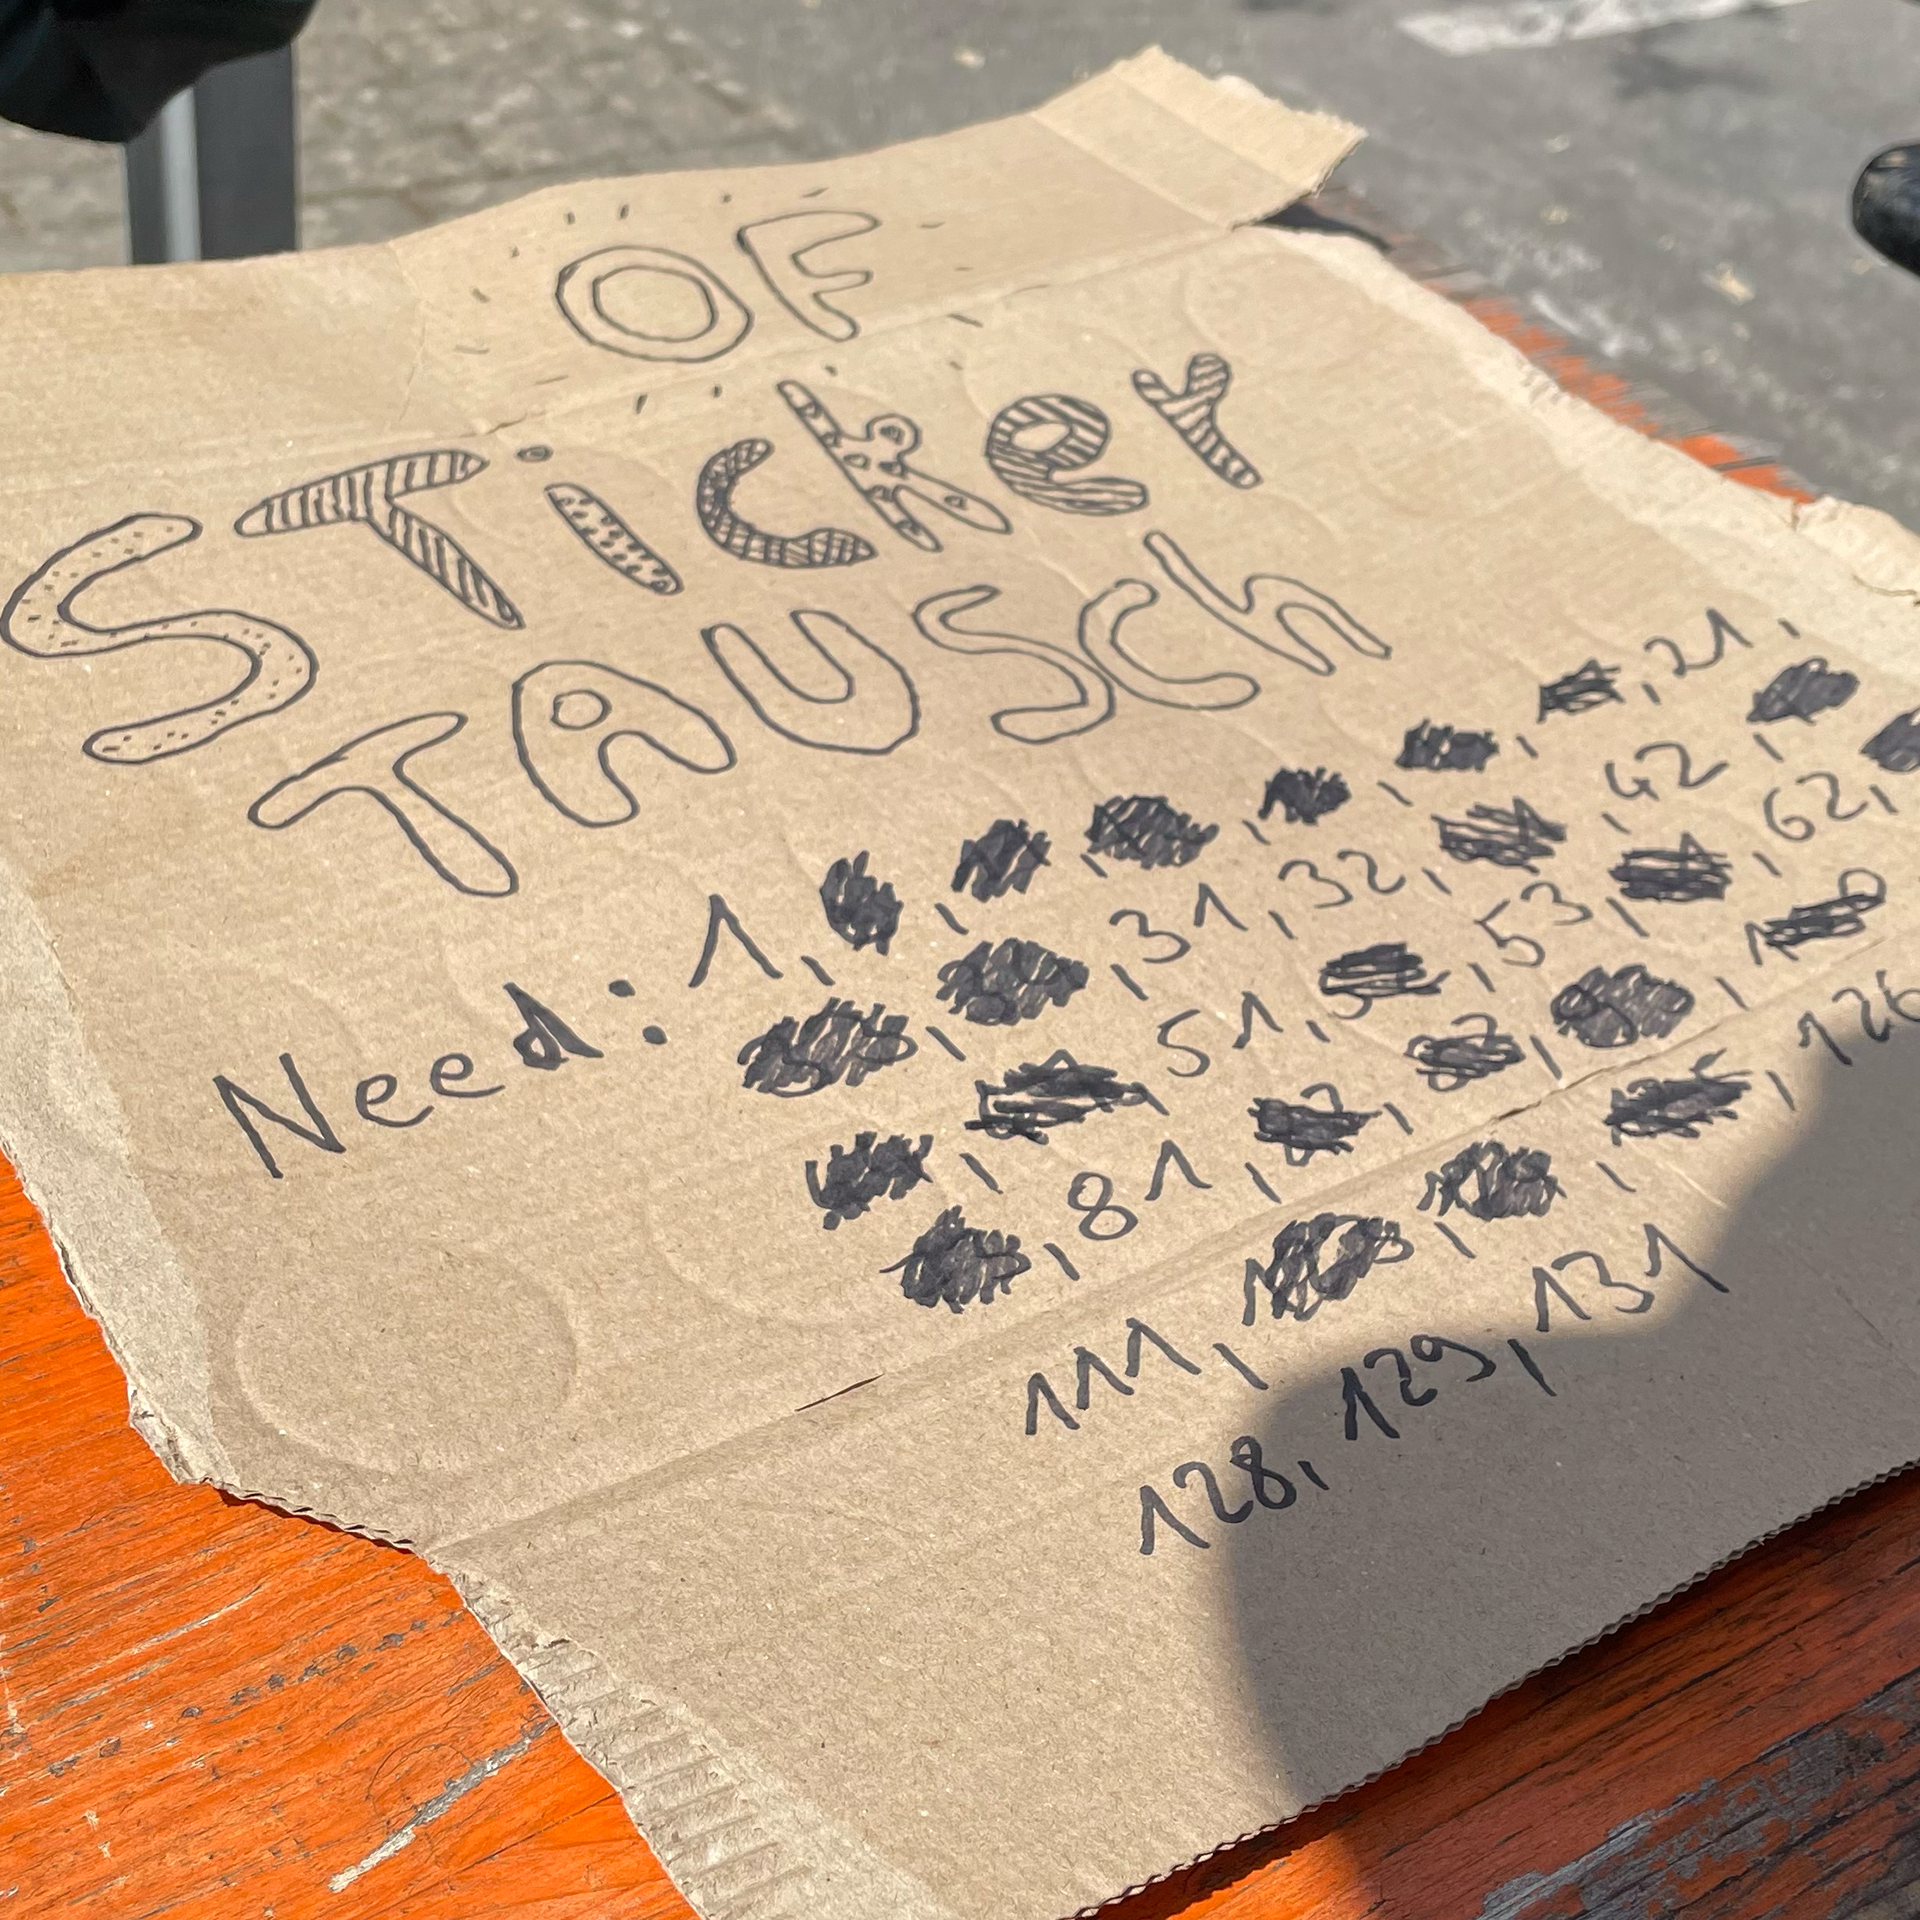 OF
STicker
TAUSCH
Need: 1, , , , , , 21,
, , 31, 32, , 42,
, 51, , 53, , 62,
, 81, , , ,
111, , , , 126
128, 129, 131